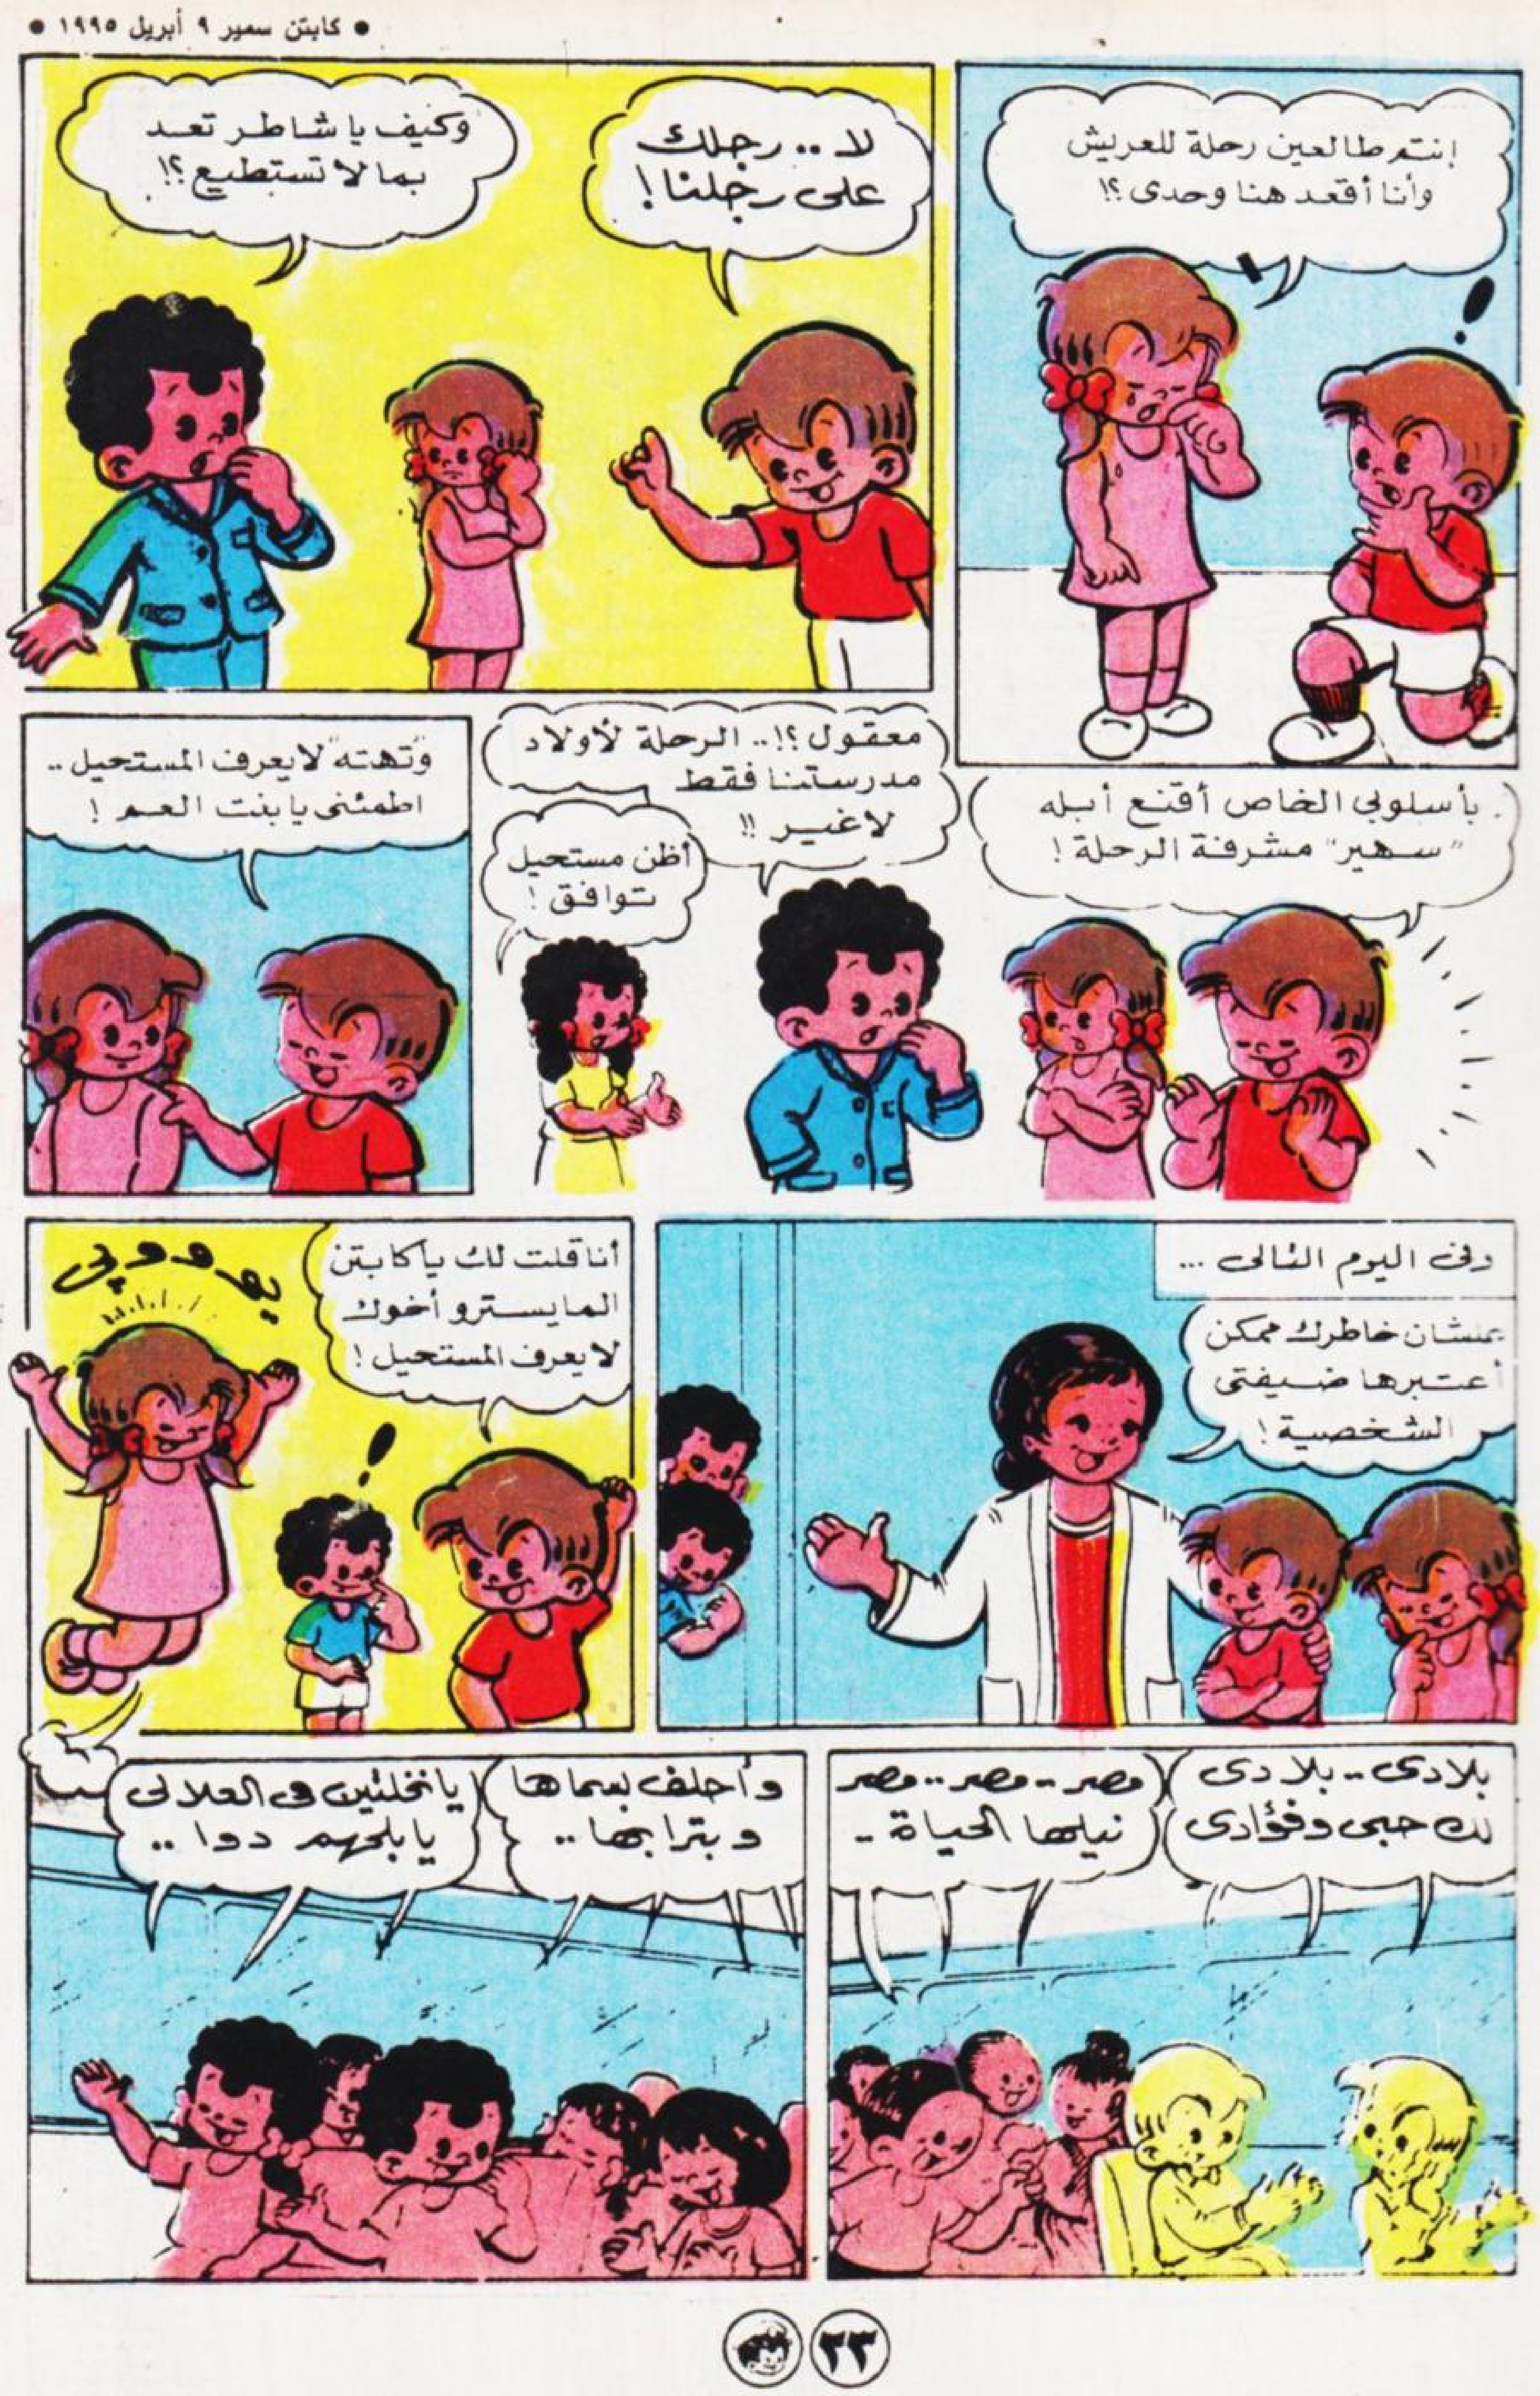 ● كابتن سمير ٩ أبريل ١٩٩٥ ●
إنتم طالعين رحلة للعريش
وأنا أقعد هنا وحدى ؟!
لا .. رجلك
على رجلنا !
وكيف يا شاطر تعد
بما لا تستطيع ؟!
بأسلوبى الخاص أقنع أبله
"سهير" مشرفة الرحلة !
معقول ؟! .. الرحلة لأولاد
مدرستنا فقط
لاغير !!
أظن مستحيل
توافق !
و"تهته" لا يعرف المستحيل ..
اطمئنى يا بنت العم !
وفى اليوم التالى ...
علشان خاطرك ممكن
أعتبرها ضيفتى
الشخصية !
أنا قلت لك يا كابتن
المايسترو أخوك
لا يعرف المستحيل !
بلادى .. بلادى
لك حبى وفؤادى
مصر .. مصر .. مصر
نيلها الحياة ..
وأحلف بسماها
وبترابها ..
يا نخلتين فى العلالى
يا بلحهم دوا ..
٢٣